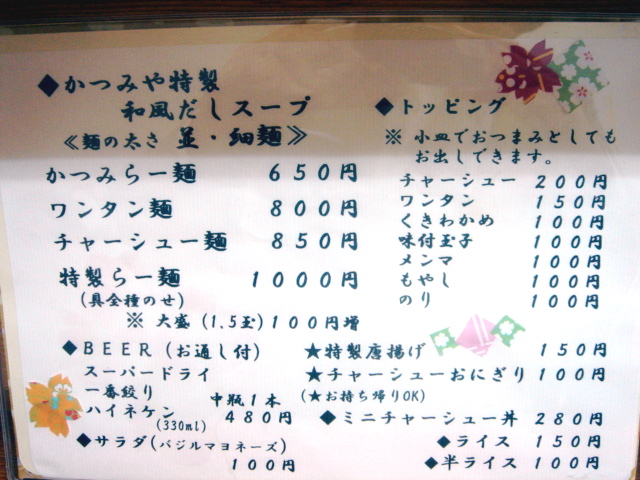 ◆かつみや特製
和風だしスープ
≪麺の太さ 並・細麺≫
かつみらー麺 650円
ワンタン麺 800円
チャーシュー麺 850円
特製らー麺 1000円
(具全種のせ)
※ 大盛 (1.5玉) 100円増
◆トッピング
※ 小皿でおつまみとしても
お出しできます。
チャーシュー 200円
ワンタン 150円
くきわかめ 100円
味付玉子 100円
メンマ 100円
もやし 100円
のり 100円
◆BEER (お通し付)
スーパードライ
一番絞り
ハイネケン
(330ml)
中瓶1本
480円
◆サラダ(バジルマヨネーズ)
100円
★特製唐揚げ 150円
★チャーシューおにぎり 100円
(★お持ち帰りOK)
◆ミニチャーシュー丼 280円
◆ライス 150円
◆半ライス 100円